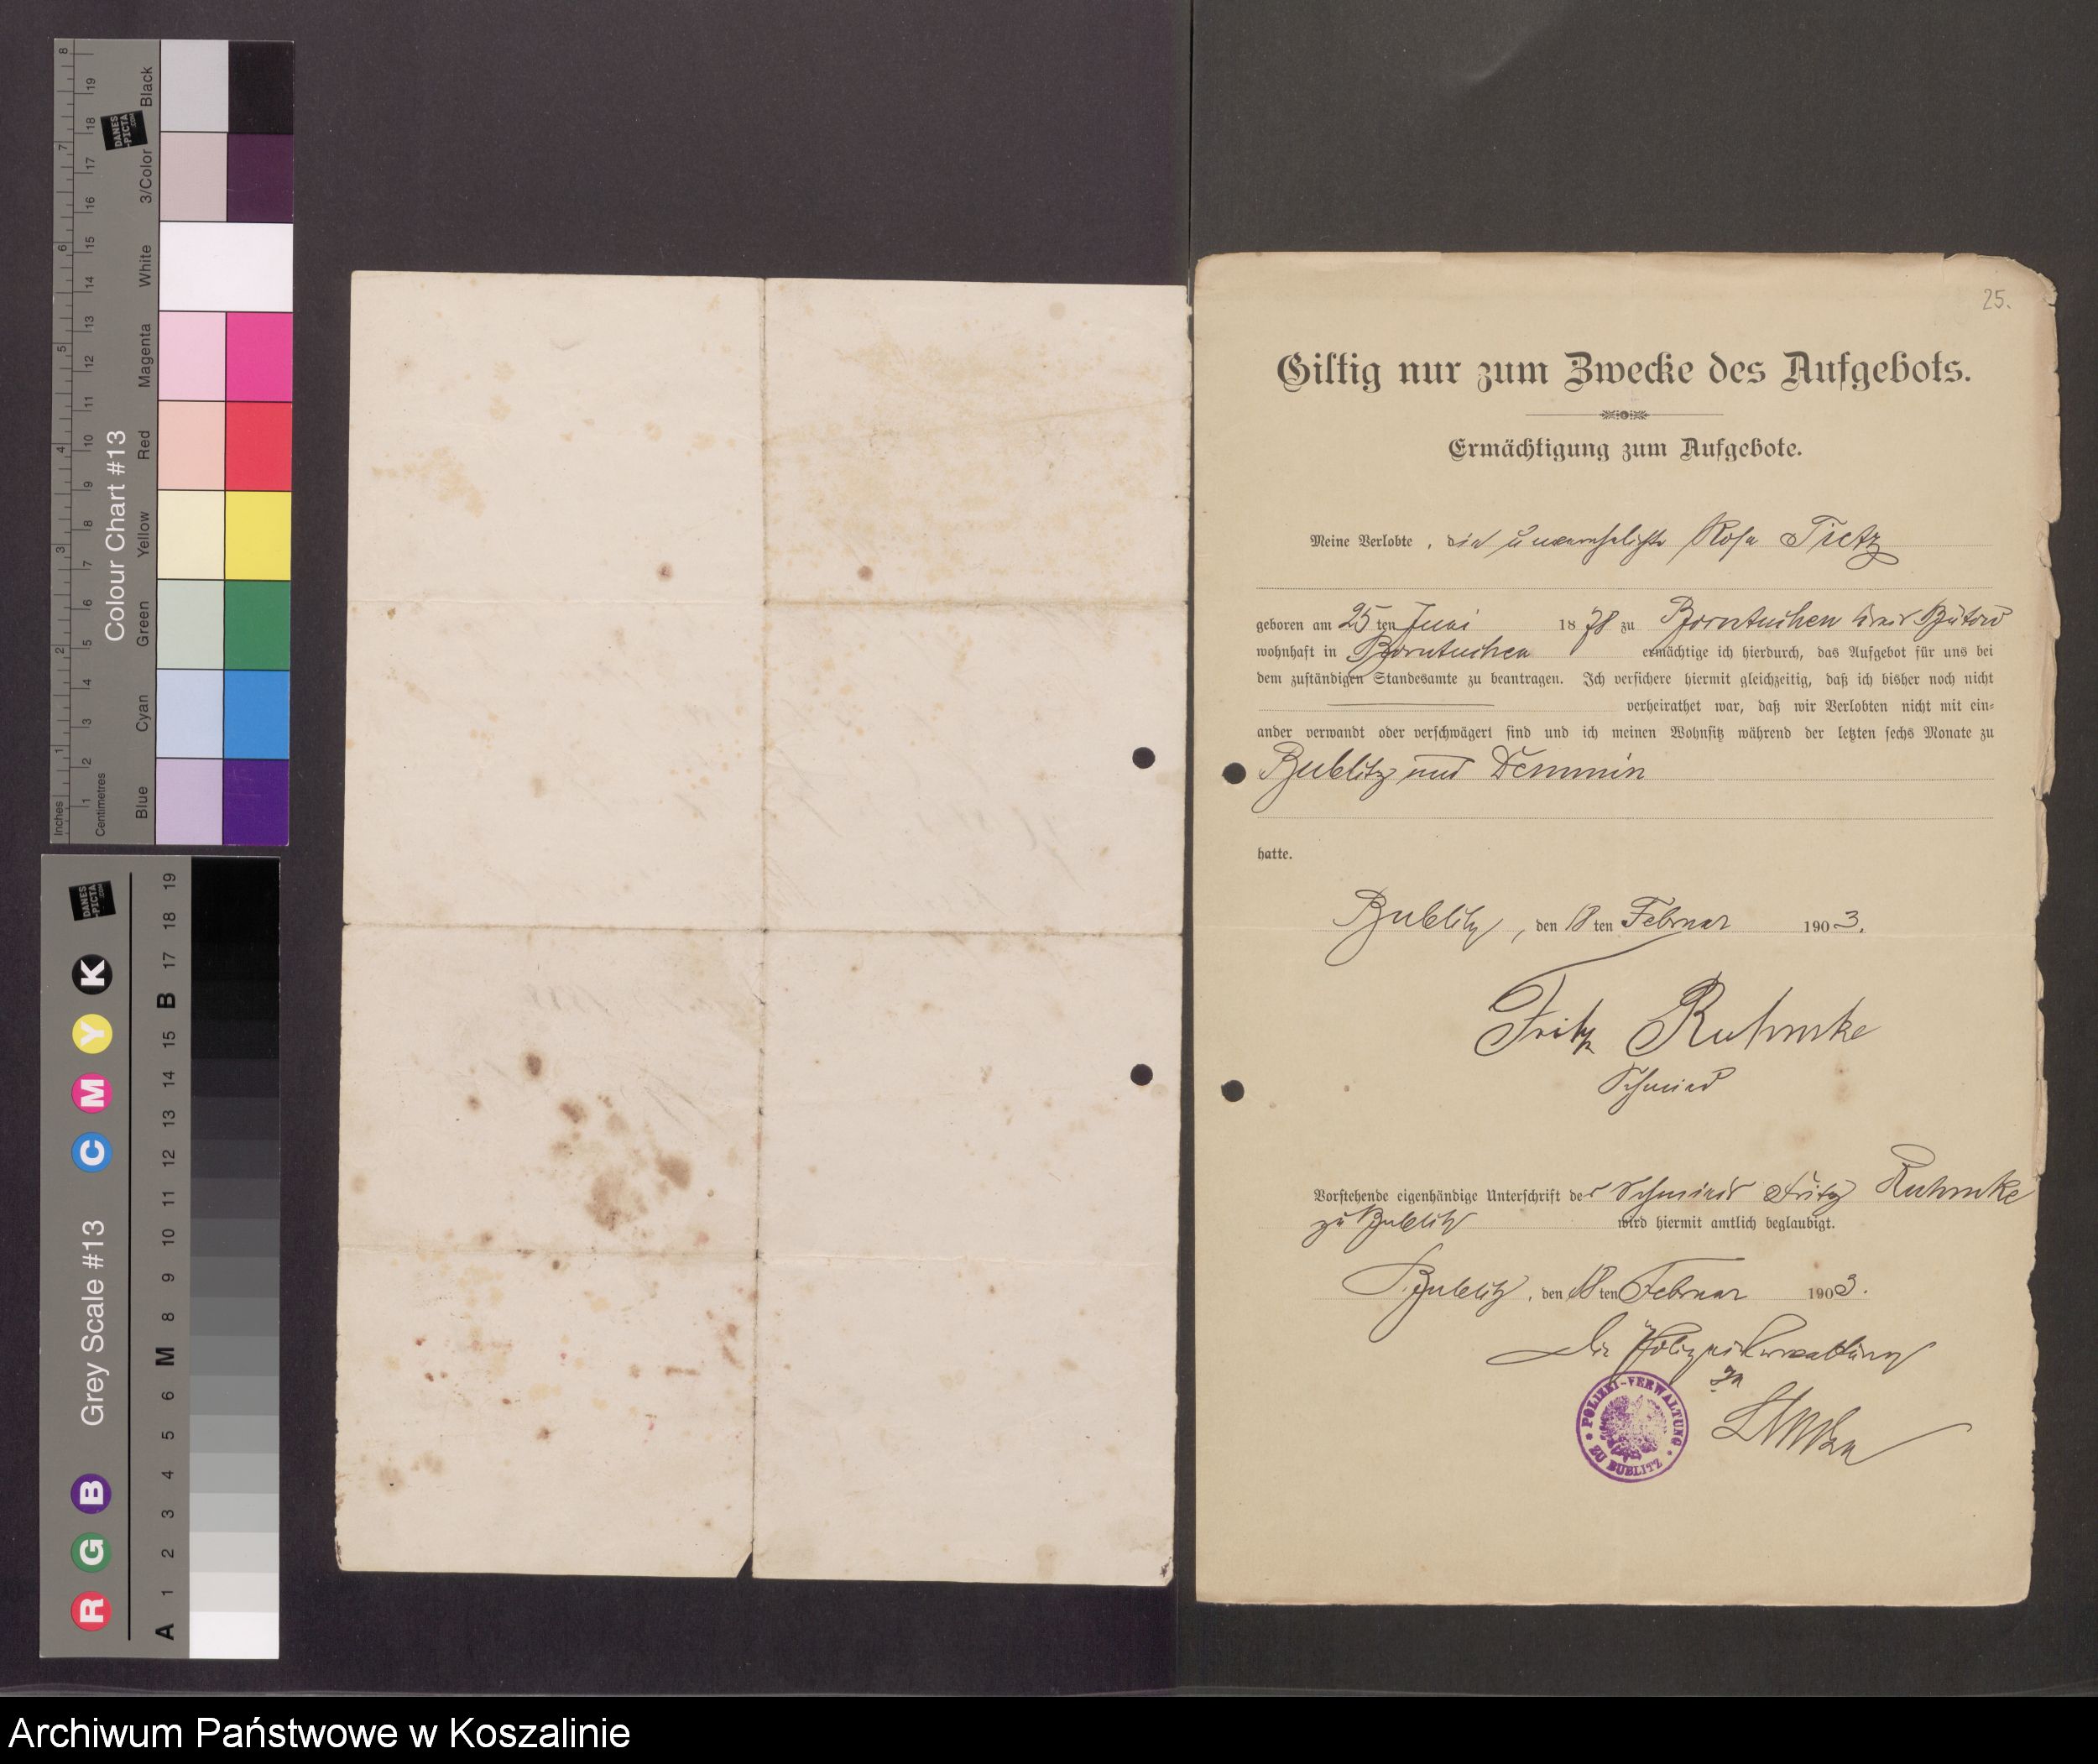 25.
Giltig nur zum Zwecke des Aufgebots.
Ermächtigung zum Aufgebote.
Meine Verlobte, die unverehelichte Rosa Tietz
geboren am 25 ten Juni 1878 zu Borntuchen Kreis Bütow
wohnhaft in Borntuchen ermächtige ich hierdurch, das Aufgebot für uns bei
dem zuständigen Standesamte zu beantragen. Ich versichere hiermit gleichzeitig, daß ich bisher noch nicht
verheirathet war, daß wir Verlobten nicht mit ein=
ander verwandt oder verschwägert sind und ich meinen Wohnsitz während der letzten sechs Monate zu
Bublitz und Demmin
hatte.
Bublitz, den 18 ten Februar 1903.
Fritz Ruhmke
Schmied
Vorstehende eigenhändige Unterschrift des Schmieds Fritz Ruhmke
zu Bublitz wird hiermit amtlich beglaubigt.
Bublitz, den 18 ten Februar 1903.
Die Polizeiverwaltung
POLIZEI-VERWALTUNG
ZU BUBLITZ
Inches
1 2 3 4 5 6 7 8
Centimetres
1 2 3 4 5 6 7 8 9 10 11 12 13 14 15 16 17 18 19
Colour Chart #13
DANES
-PICTA
.COM
Blue Cyan Green Yellow Red Magenta White 3/Color Black
Grey Scale #13
R G B C M Y K
DANES
-PICTA
.COM
A 1 2 3 4 5 6 M 8 9 10 11 12 13 14 15 B 17 18 19
Archiwum Państwowe w Koszalinie